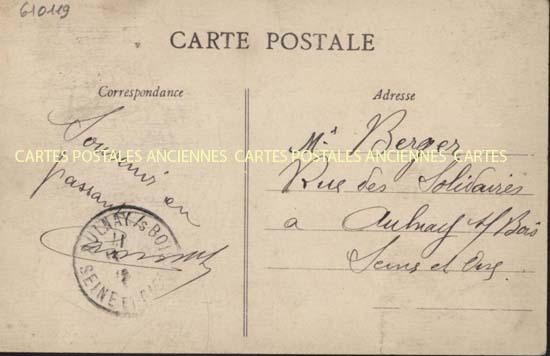 610119
CARTE POSTALE
Correspondance
Adresse
Souvenir en
passant
Mr Berger
Rue des Solidaires
a Aulnay s/ Bois
Seine et Oise
AULNAY-/s-BOIS
SEINE ET OISE
CARTES POSTALES ANCIENNES CARTES POSTALES ANCIENNES CARTES